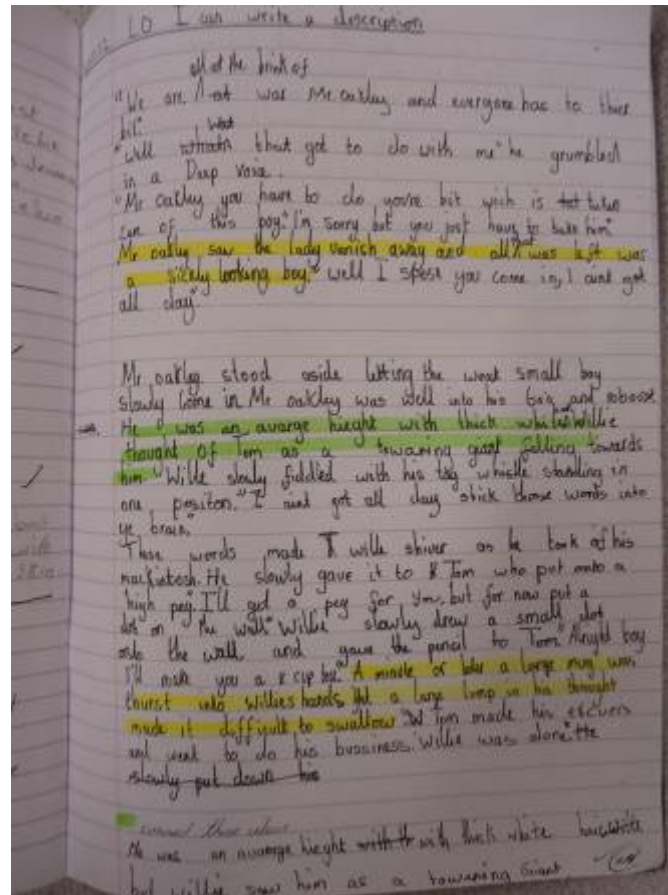 LO I can write a description
all at the brink of
"We are ^ wat was Mr oakley and everyone has to thier
bit."
what
"Well that got to do with me" he grumbled
in a Deep voice.
"Mr oakley you have to do youre bit wich is taken
care of this boy." I'm sorry but you just have to take him."
Mr oakley saw the lady vanish away and all was left was
a sickly looking boy." Well I spose you come in, I aint got
all day"
Mr oakley stood aside letting the weat small boy
slowly come in Mr oakley was well into his 60s and
He was an avarge hieght with thick white Willie
thought of Tom as a towaring giant falling towards
him. Willie slowly fiddled with his tag whistle standing in
one positon. "I aint got all day stick those words into
ye brain."
These words made willie shiver as he took of his
mackintosh. He slowly gave it to Tom who put onto a
high peg. I'll get a peg for you, but for now put a
dot on the wall" Willie slowly drew a small dot
onto the wall and gave the pencil to Tom "Alright boy
I'll make you a cup
A minute or later a large mug was
thurst into willies hands but a large lump in his throught
made it difficult to swallow Tom made his excuers
and went to do his bussiness. Willie was alone. He
slowly put down his
He was an avarage hieght with th with thick white
but willie saw him as a towaring giant.